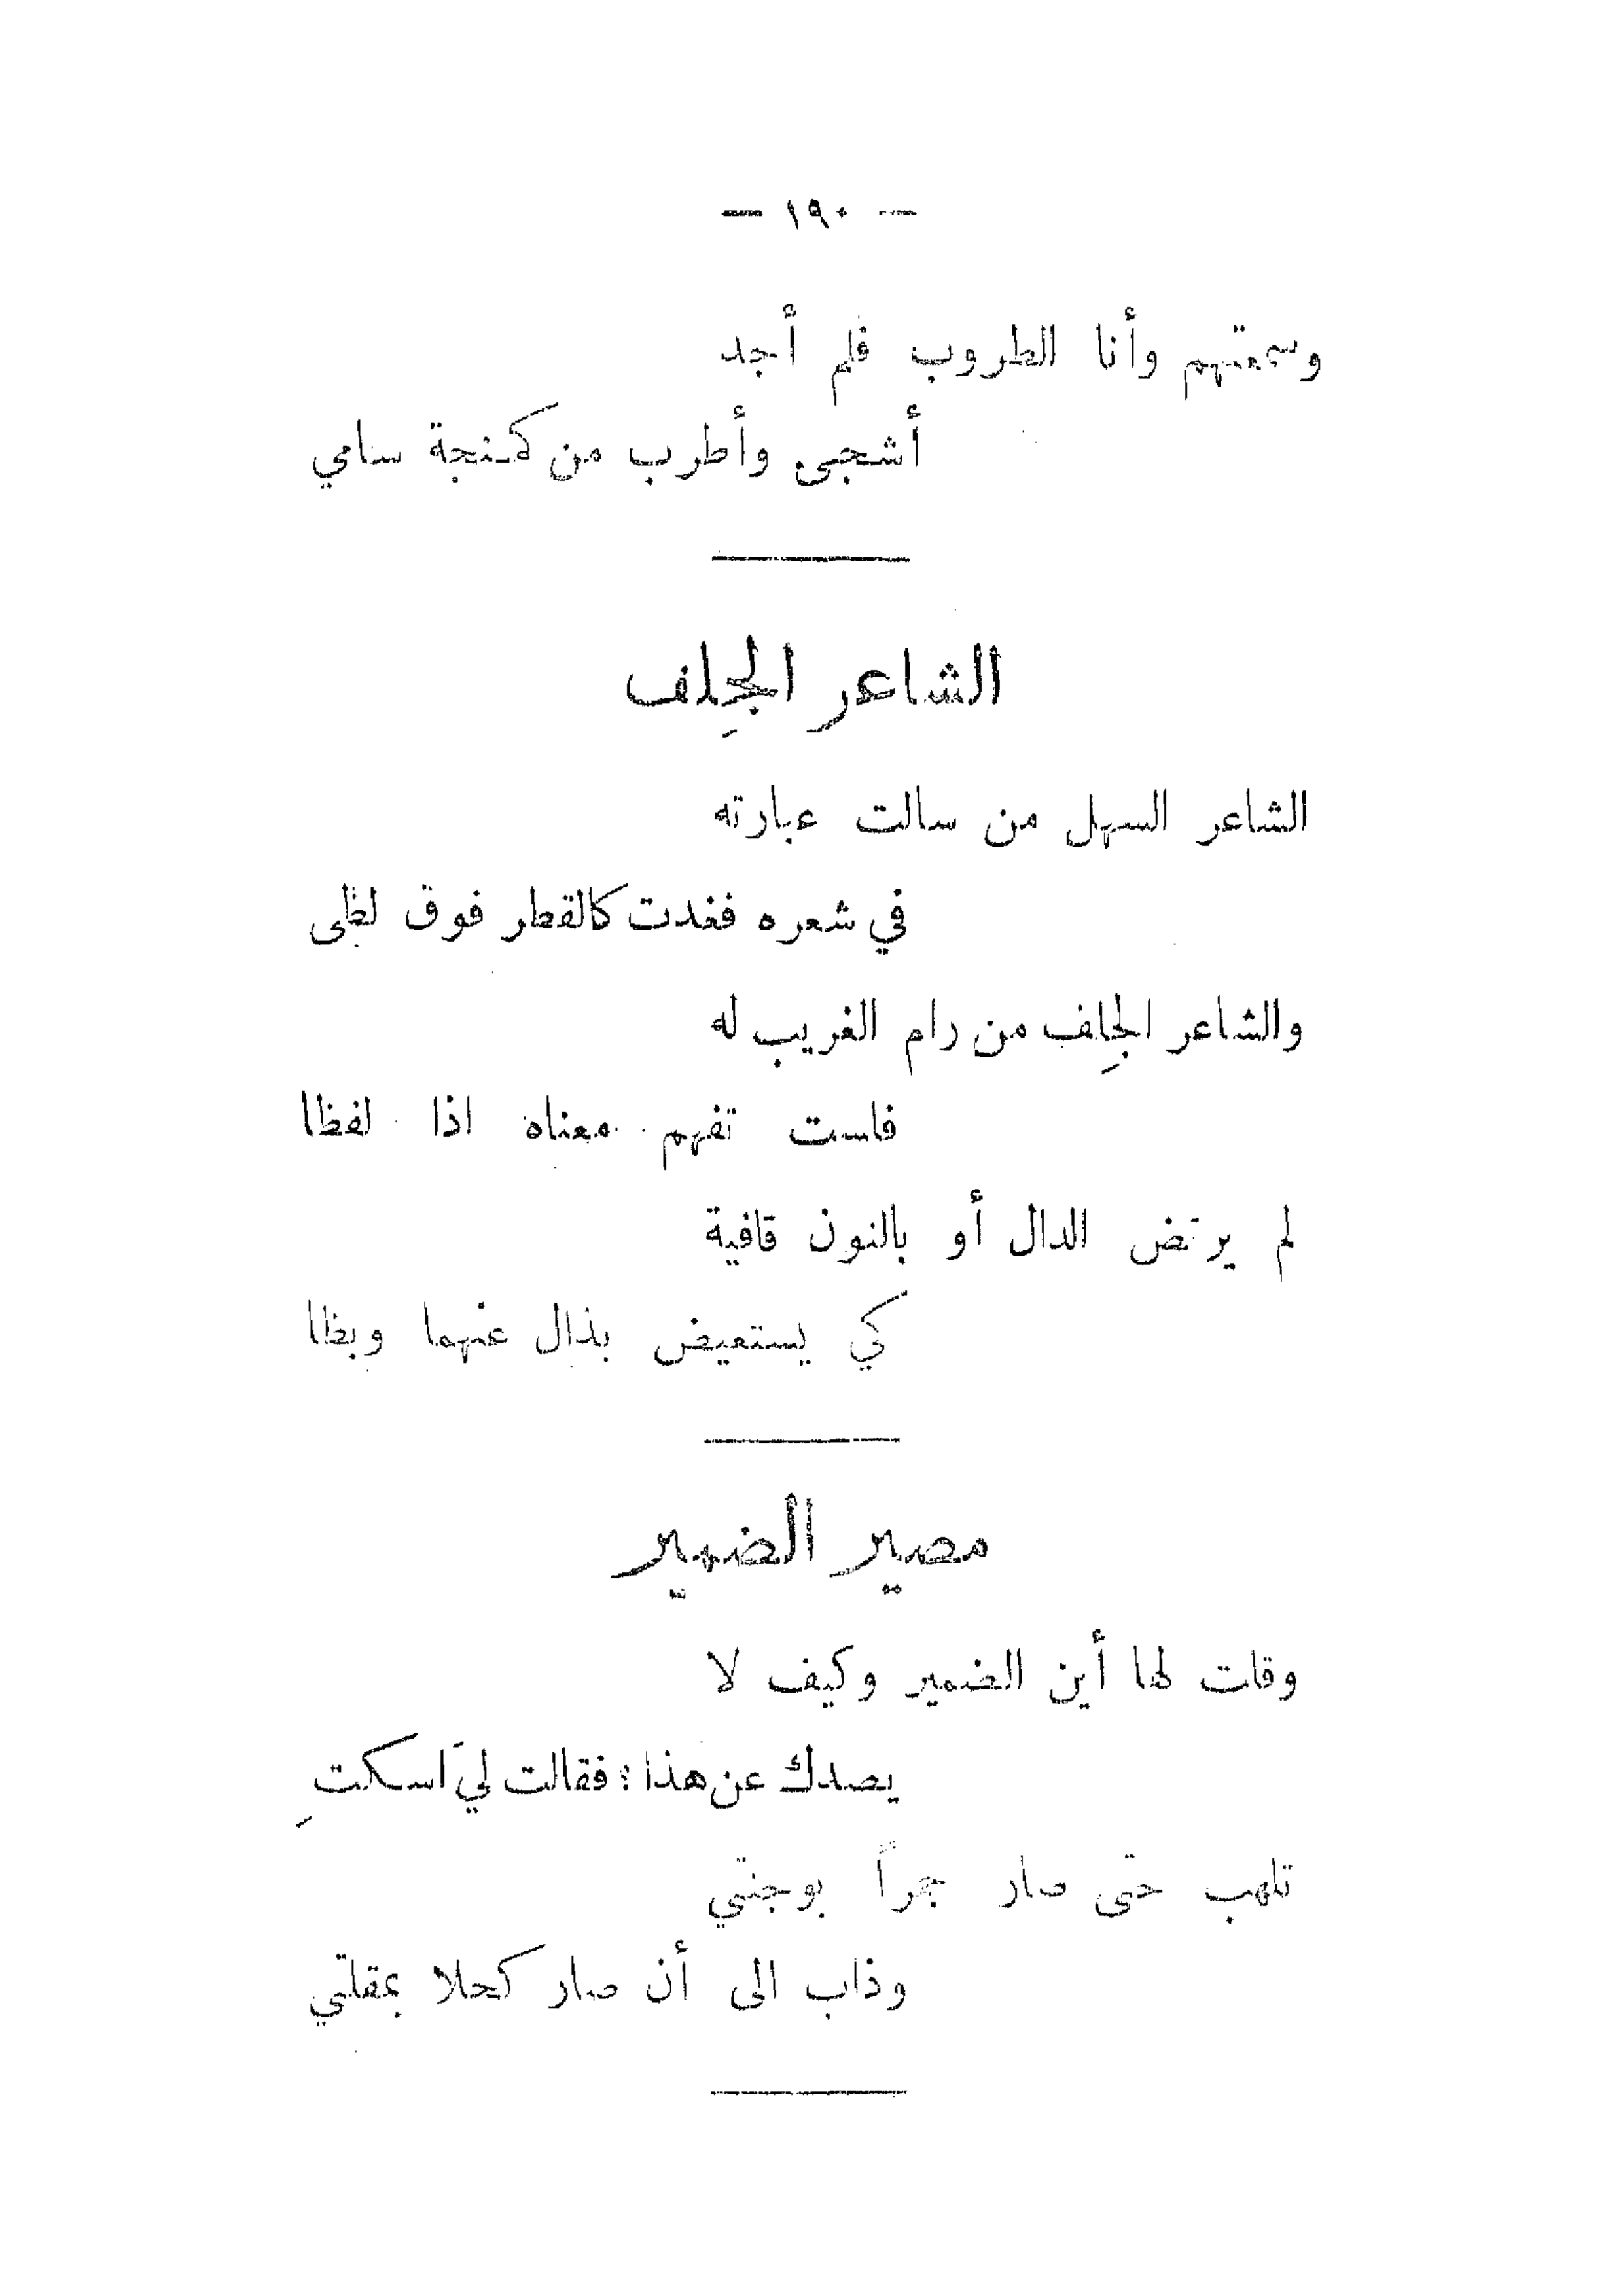 — ١٩٠ —
وسمعتهم وأنا الطروب فلم أجد
أشجى وأطرب من كمنجة سامي
الشاعر الجِلف
الشاعر السهل من سالت عبارته
في شعره فغدت كالقطر فوق لظى
والشاعر الجِلف من رام الغريب له
فلست تفهم معناه اذا لفظا
لم يرتض الدال أو بالنون قافية
كي يستعيض بذال عنهما وبظا
مصير الضمير
وقلت لها أين الضمير وكيف لا
يصدك عن هذا؟ فقالت ليَ اسكتِ
تلهب حتى صار جمراً بوجنتي
وذاب الى أن صار كحلا بمقلتي